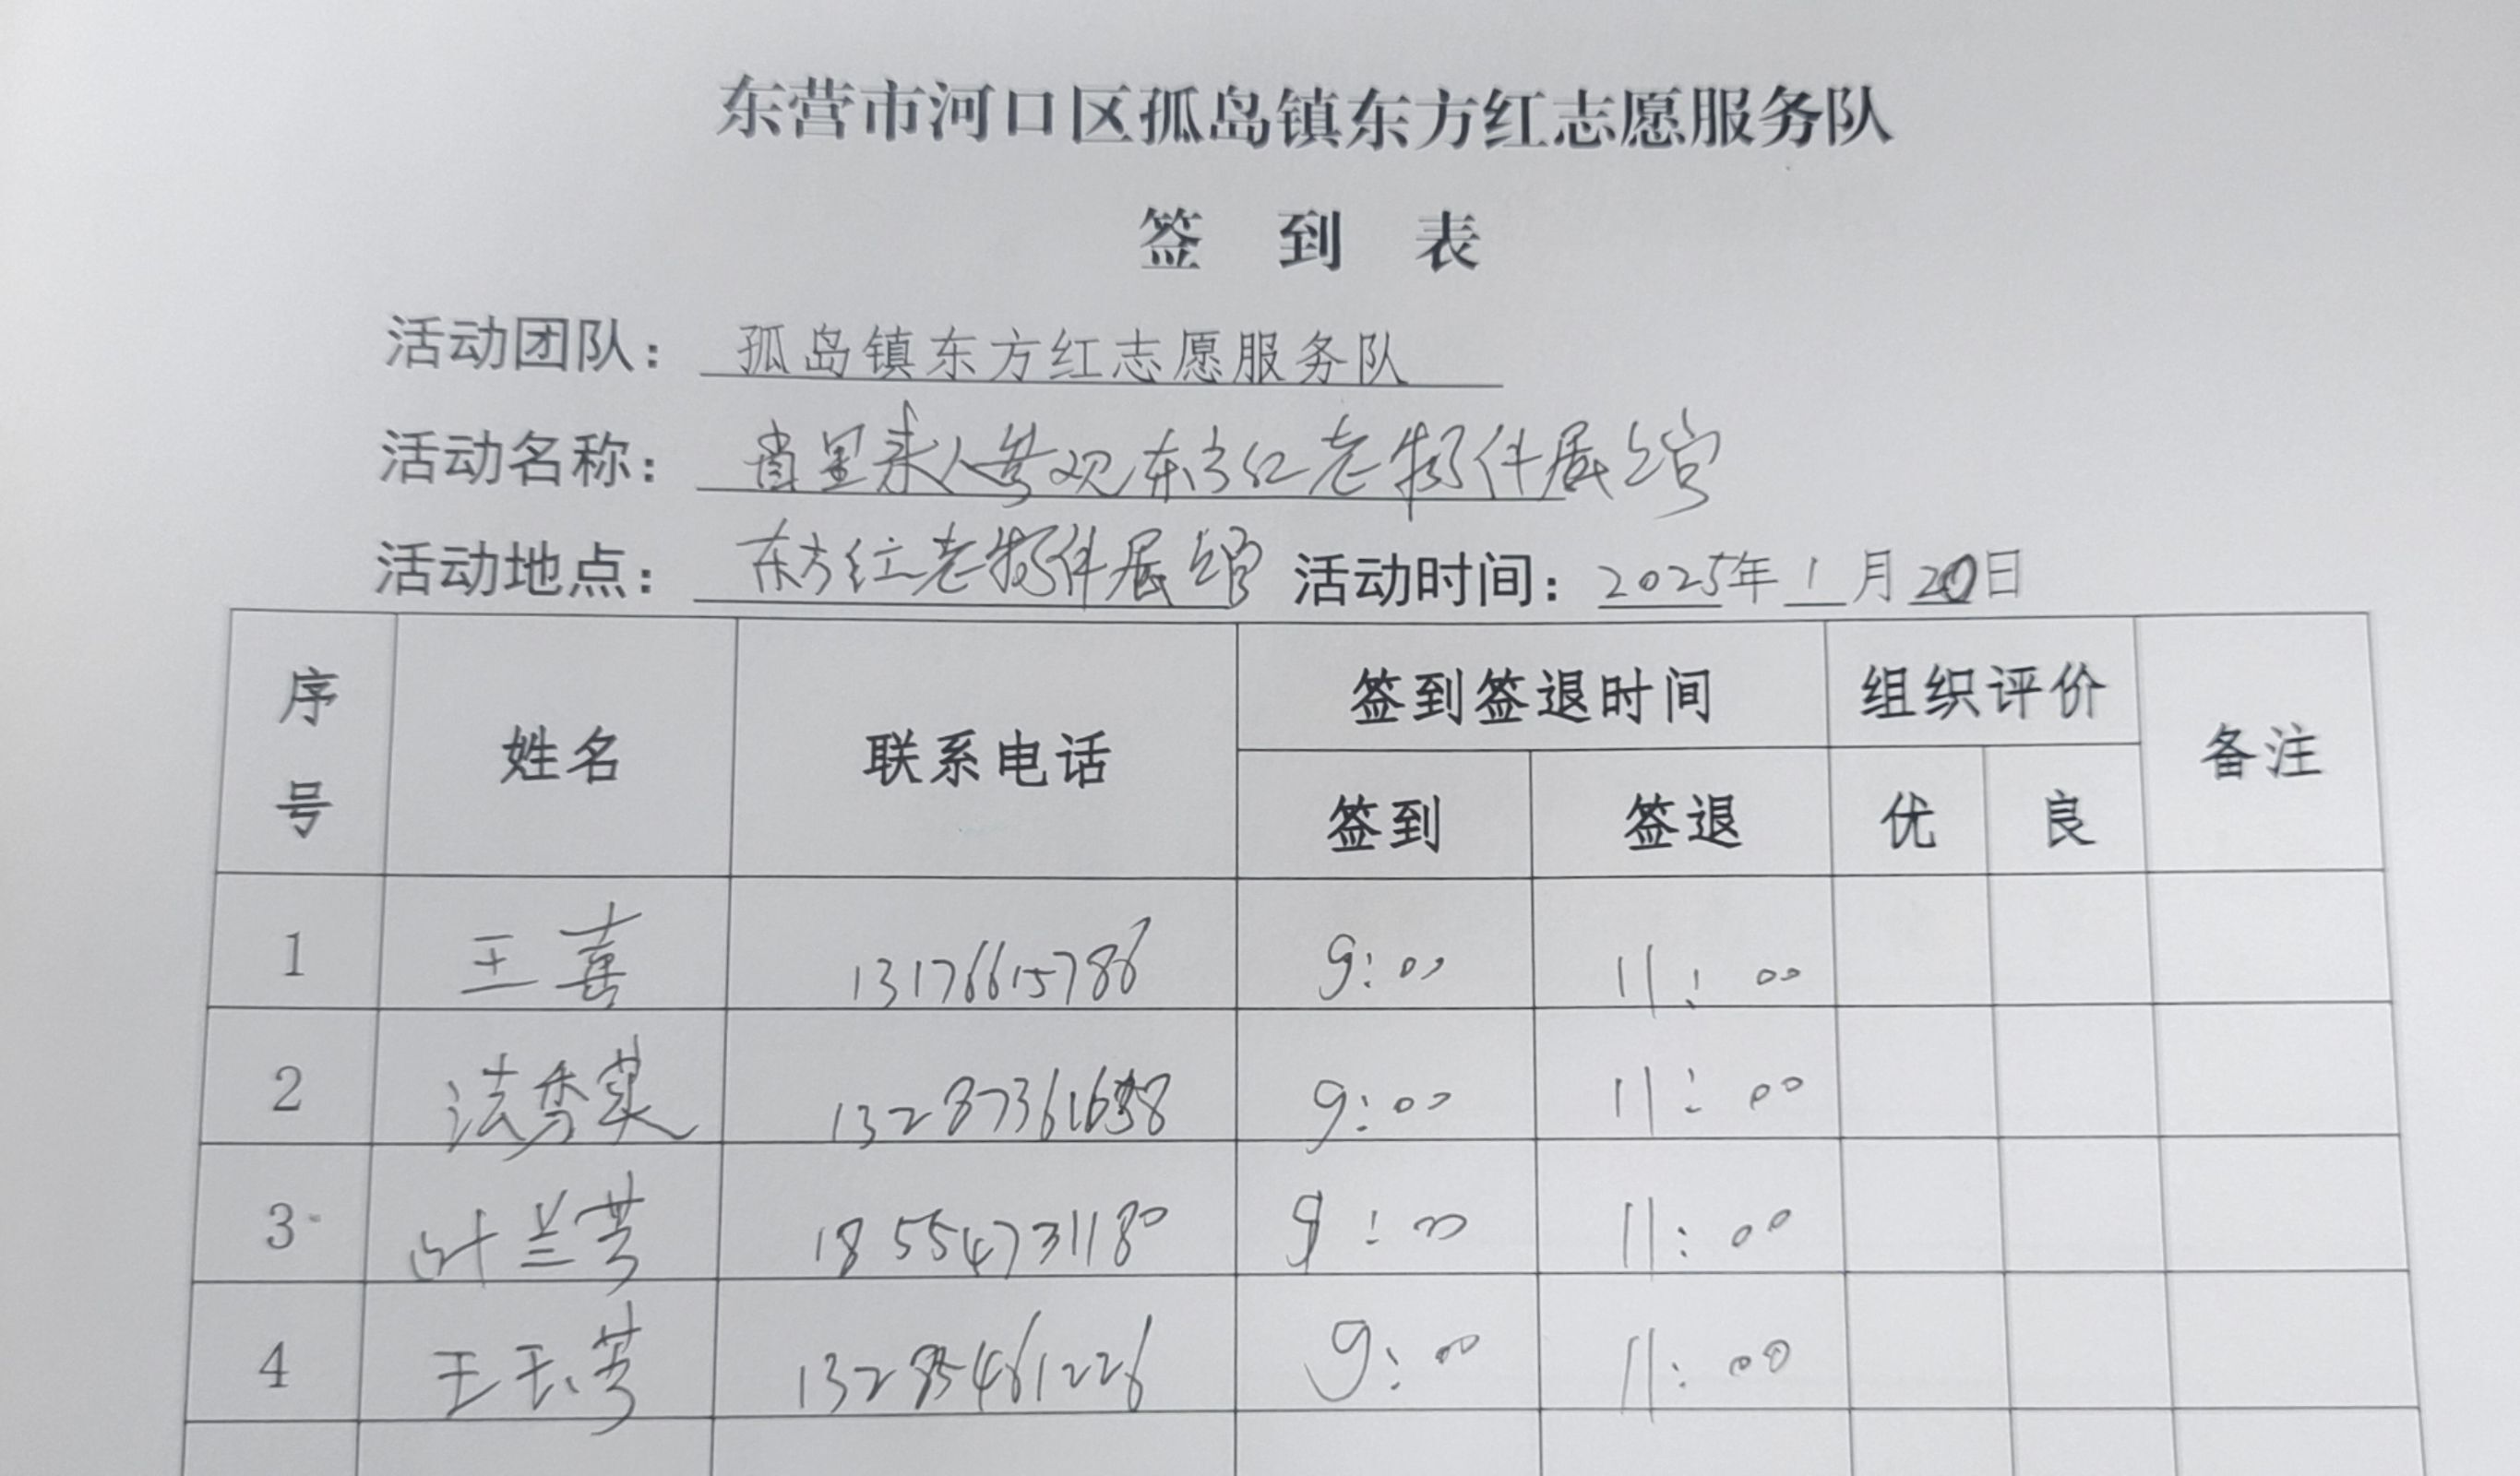 东营市河口区孤岛镇东方红志愿服务队
签 到 表
活动团队： 孤岛镇东方红志愿服务队
活动名称： 省里来人参观东方红老物件展馆
活动地点： 东方红老物件展馆 活动时间：2025年1月20日
序号 姓名 联系电话 签到签退时间 组织评价 备注
签到 签退 优 良
1 王喜 13176615786 9:00 11:00
2 法秀英 9:00 11:00
3 叶兰芳 18554731180 9:00 11:00
4 王玉芳 13285461226 9:00 11:00